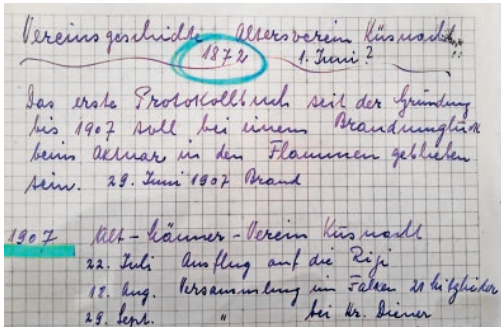 Vereinsgeschichte Altersverein Küsnacht
1872 1. Juni?
Das erste Protokollbuch seit der Gründung
bis 1907 soll bei einem Brandunglück
beim Aktuar in den Flammen geblieben
sein. 29. Juni 1907 Brand
1907 Alt-Männer-Verein Küsnacht
22. Juli Ausflug auf die Rigi
12. Aug. Versammlung im Falken 21 Mitglieder
29. Sept. " bei Hr. Diener